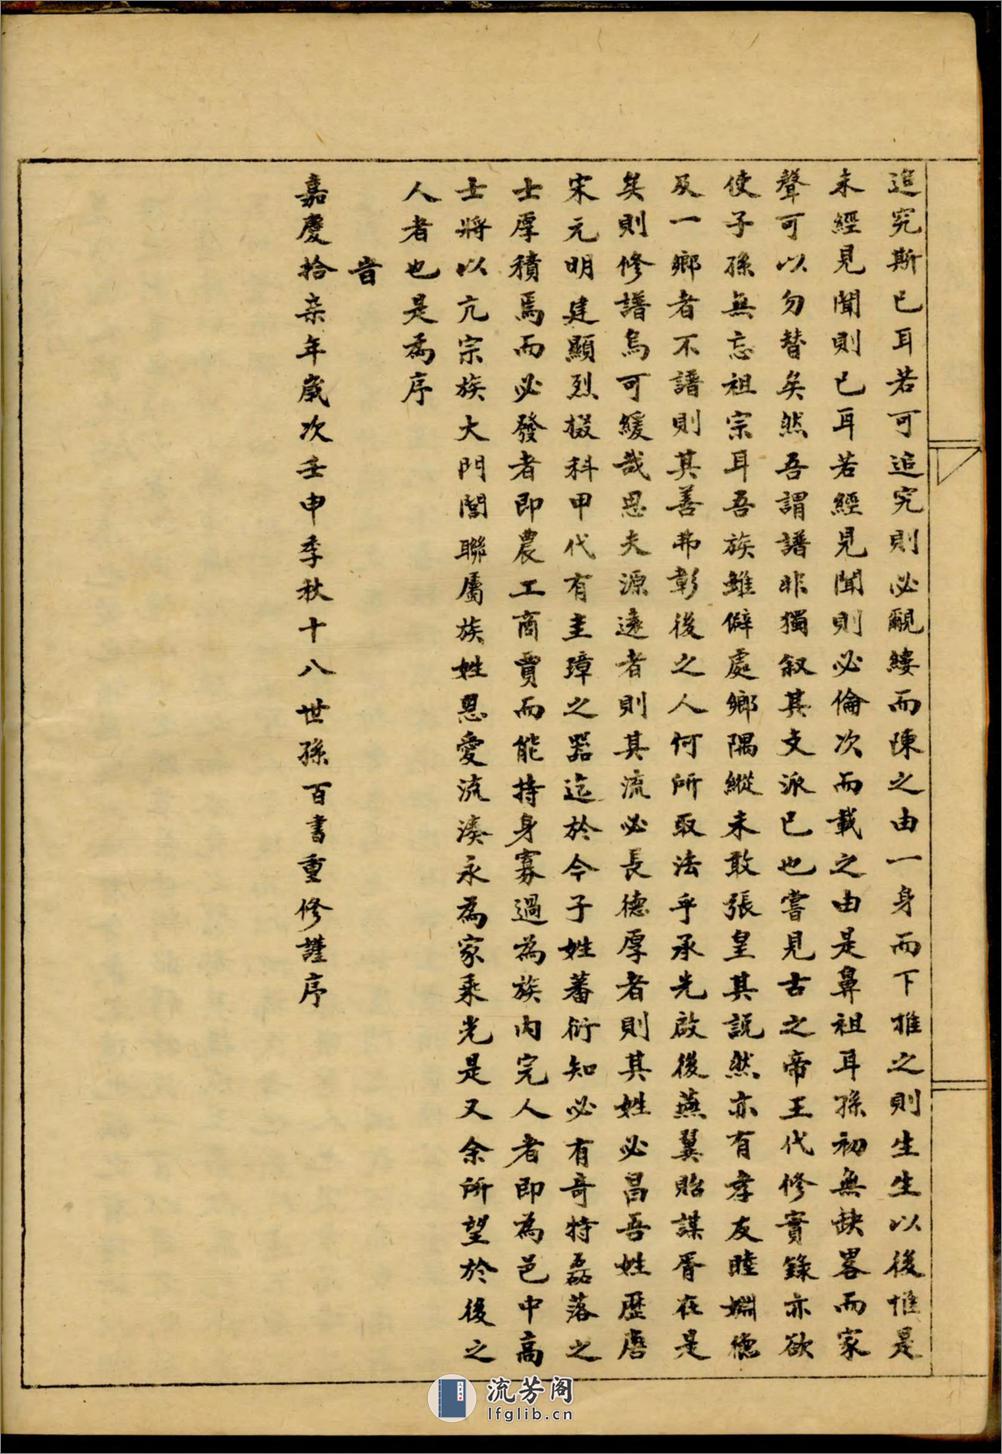 追究斯已耳若可追究則必覼縷而陳之由一身而下推之則生生以後惟是
未經見聞則已耳若經見聞則必倫次而載之由是鼻祖耳孫初無缺畧而家
聲可以勿替矣然吾謂譜非獨叙其支派已也嘗見古之帝王代修實錄亦欲
使子孫無忘祖宗耳吾族雖僻處鄉隅縱未敢張皇其説然亦有孝友睦婣德
及一鄉者不譜則其善弗彰後之人何所取法乎承先啟後燕翼貽謀胥在是
矣則修譜烏可緩哉思夫源遠者則其流必長德厚者則其姓必昌吾姓歷唐
宋元明建顯烈掇科甲代有圭璋之器迄於今子姓蕃衍知必有奇特磊落之
士厚積焉而必發者即農工商賈而能持身寡過為族内完人者即為邑中高
士將以亢宗族大門閭聯屬族姓恩愛流湊永為家乘光是又余所望於後之
人者也是為序
旹
嘉慶拾柒年歲次壬申季秋十八世孫百書重修謹序
流芳阁
lfglib.cn